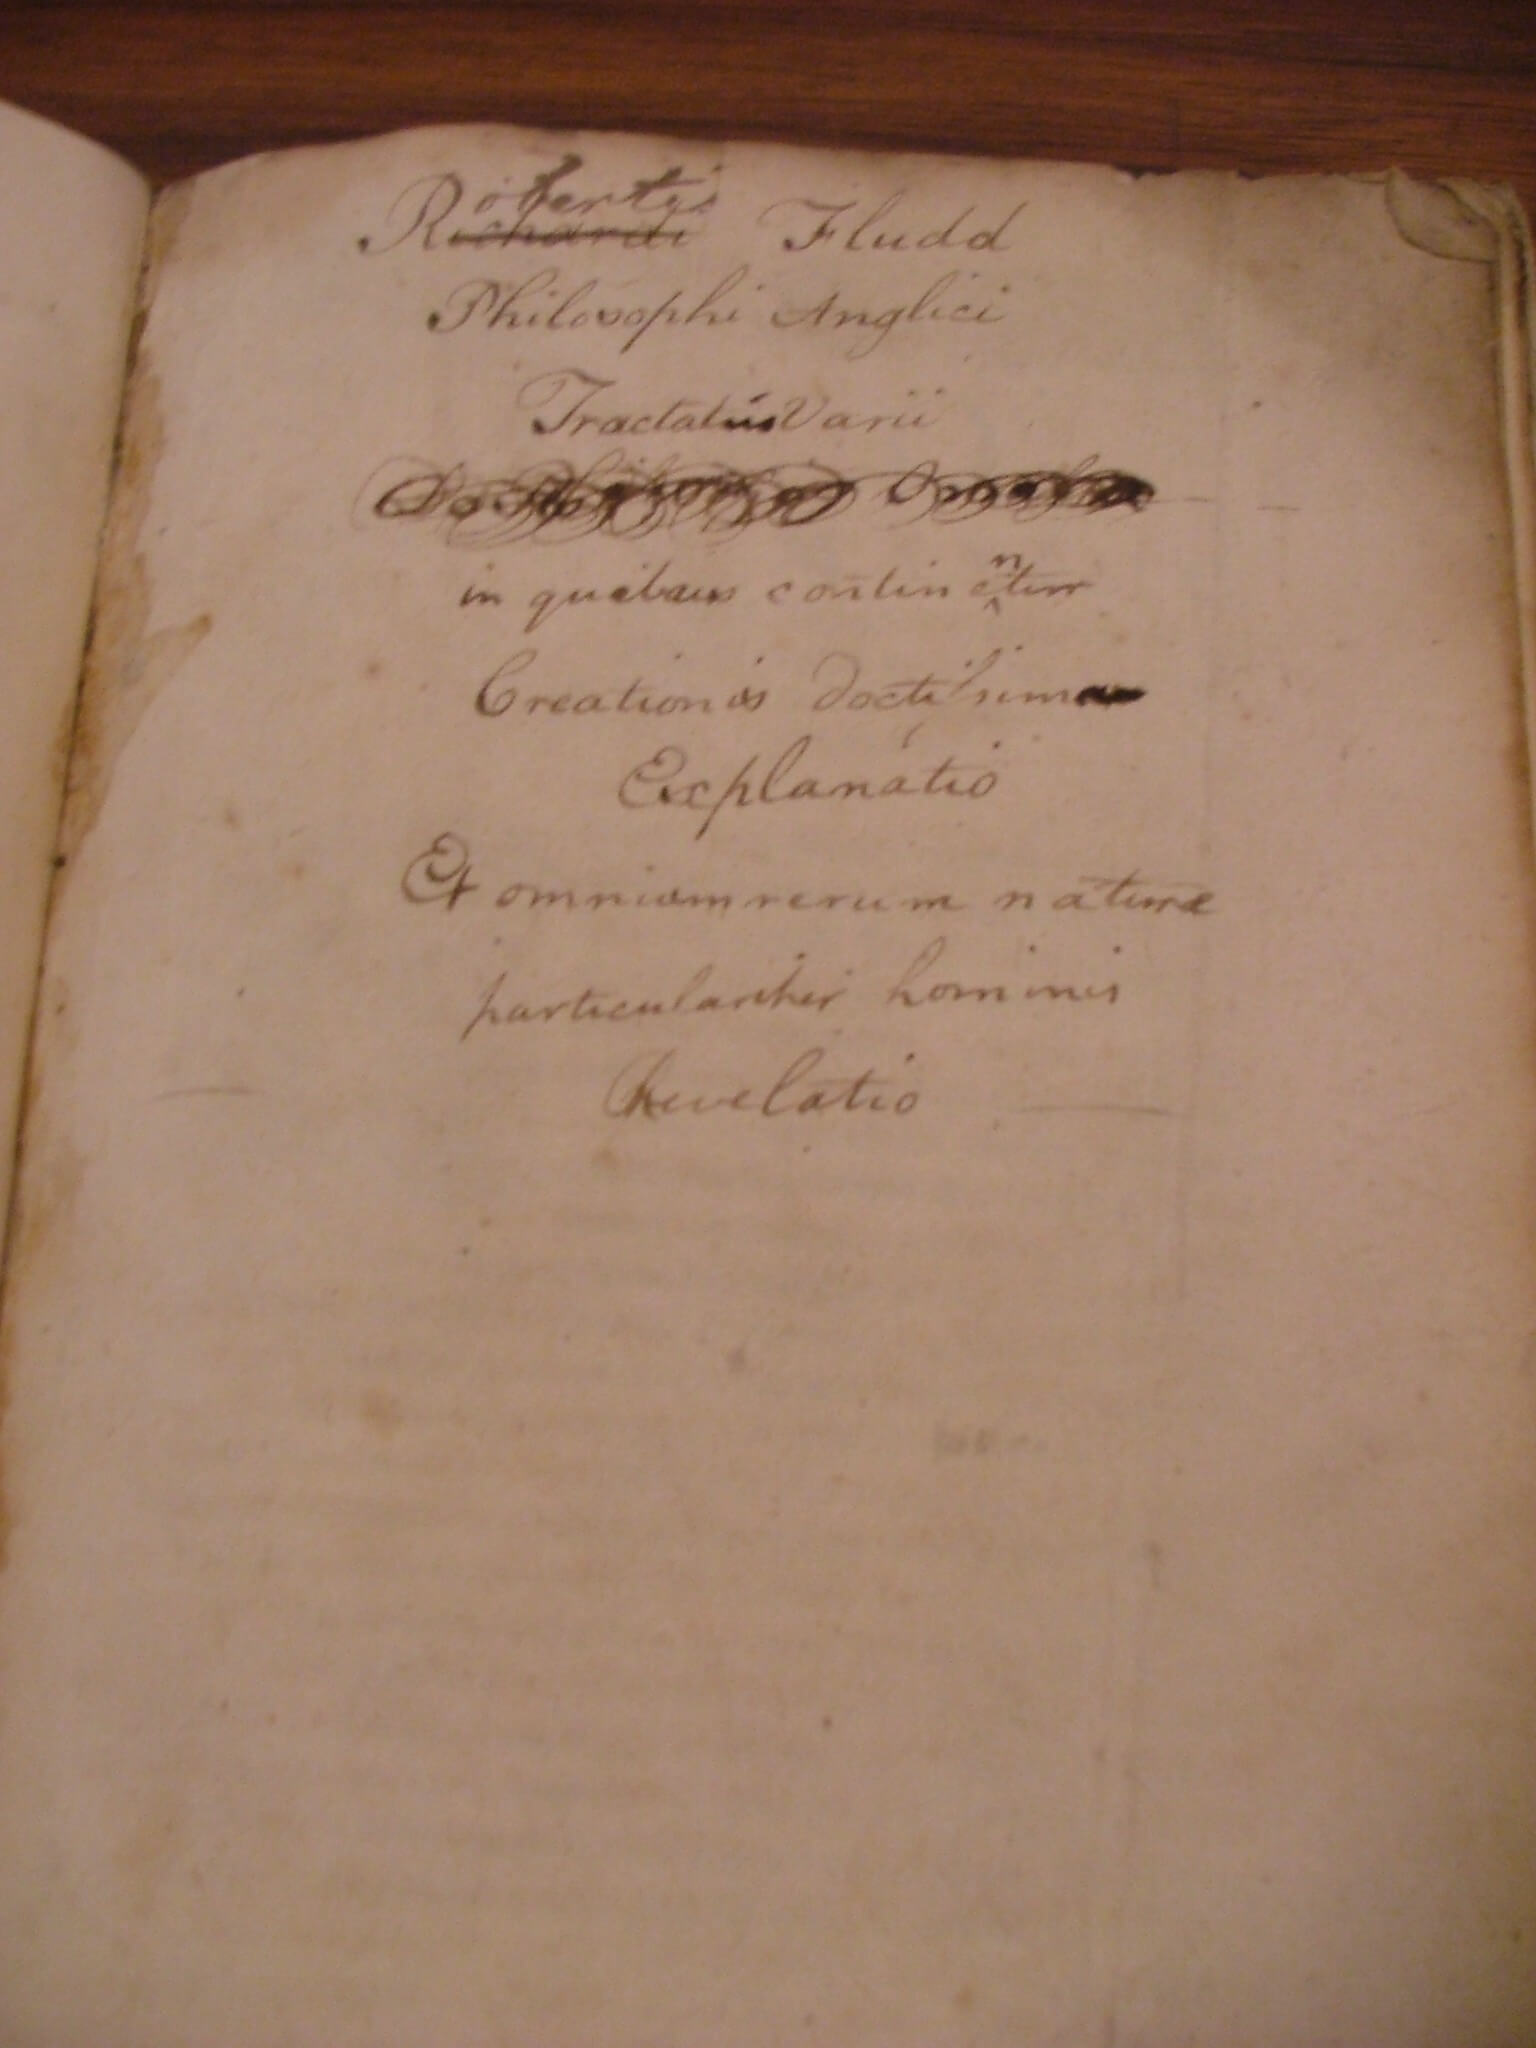 Robertus Richardi Fludd
Philosophi Anglici
Tractatus Varii
in quibus continentur
Creationis doctissima
Explanatio
Et omnium rerum naturæ
particulariter hominis
Revelatio